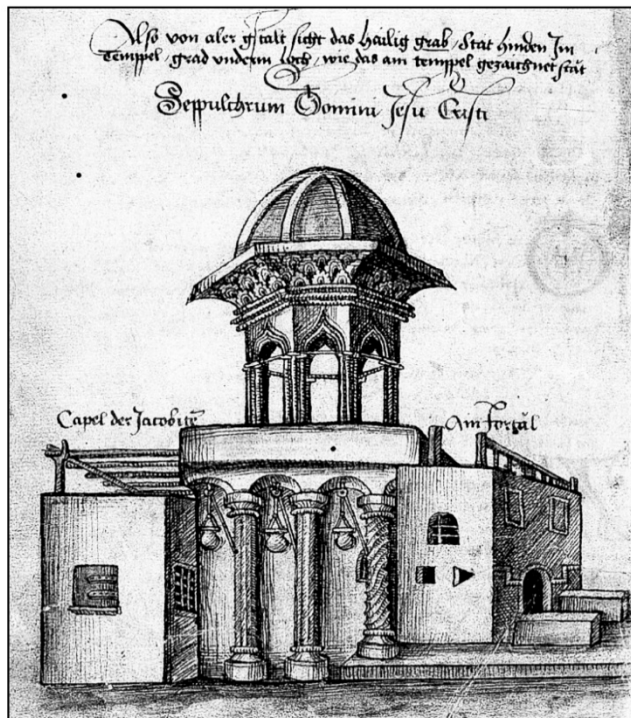 Also von aler gstalt sicht das Hailig grab, Stat hinden Im
Temppel, grad underm loch, wie das am temppel gezaichnet stät
Seppulchrum Domini Jesu Cristi
Capel der Jacobite
Ain